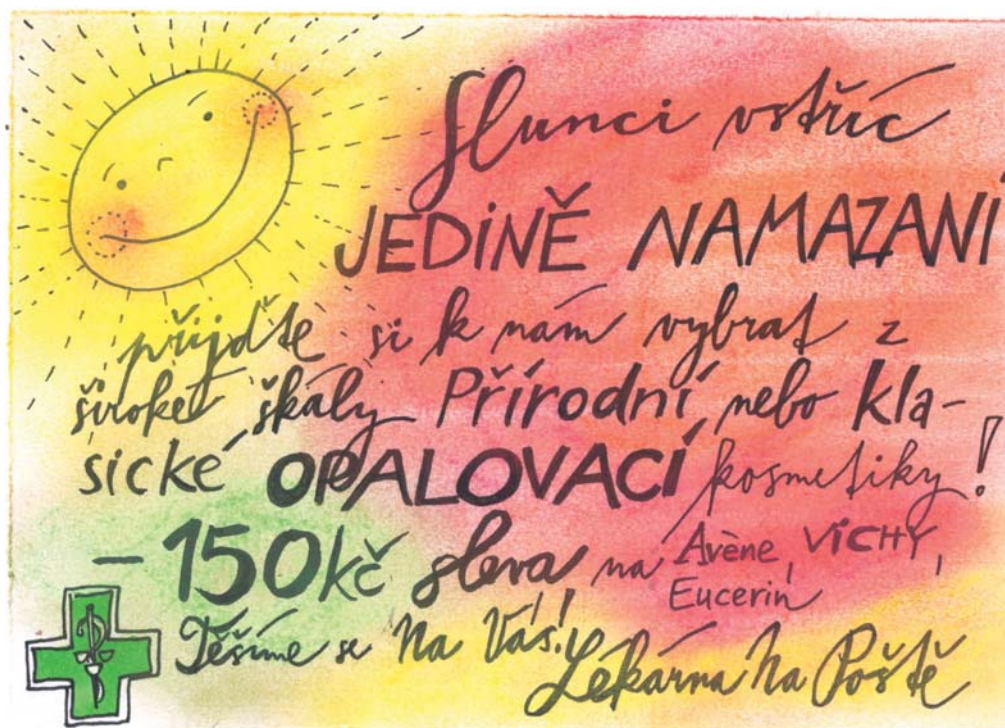 Slunci vstříc
JEDINĚ NAMAZANÍ
přijďte si k nám vybrat z
široké škály Přírodní nebo kla-
sické OPALOVACÍ kosmetiky!
- 150kč sleva na Avène, VICHY,
Eucerin
Těšíme se Na Vás!
Lékárna Na Poště